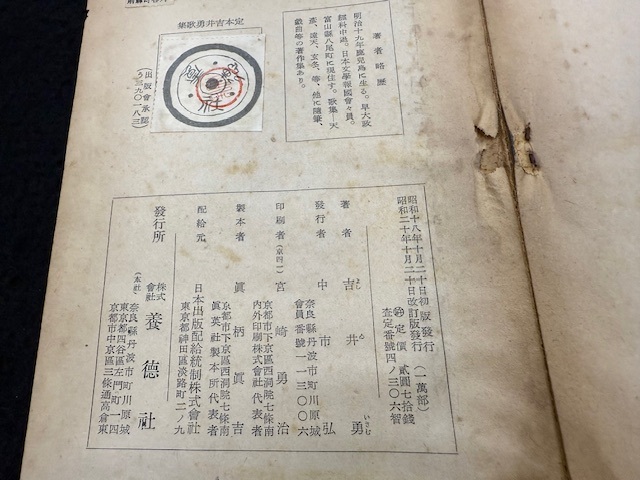 著者略歴
明治十九年鹿兒島に生る。早大政
經科中退。日本文學報國會々員。
富山縣八尾町に現住す。歌集―天
彦、遠天、玄冬、等、他に隨筆、
戲曲等の著作集あり。
定本吉井勇歌集
養德社
(出版會承認
う三九〇一八三)
昭和十八年十月二十日初版發行
昭和二十年十月二十日改訂版發行 (一萬部)
定價 貳圓七拾錢
査定番號四ノ三〇六智
著者 吉井勇
よしゐ いさむ
發行者 中市弘
奈良縣丹波市町川原城
會員番號一一三〇〇六
印刷者(京四一) 宮崎勇治
京都市下京區西洞院七條南
内外印刷株式會社代表者
製本者 眞柄眞吉
京都市下京區西洞院七條南
眞英社製本所代表者
配給元 日本出版配給統制株式會社
東京都神田區淡路町二ノ九
發行所 株式會社 養德社
(本社) 奈良縣丹波市町川原城
東京都四谷區左門町一四
京都市中京區三條通高倉東